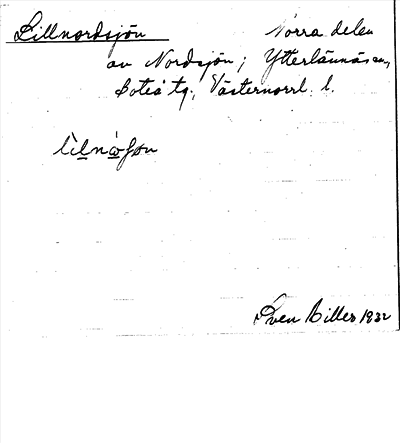 Lillnordsjön Norra delen
av Nordsjön; Ytterlännäs sn,
Boteå tg, Västernorrl. l.
Sven Biller 1932